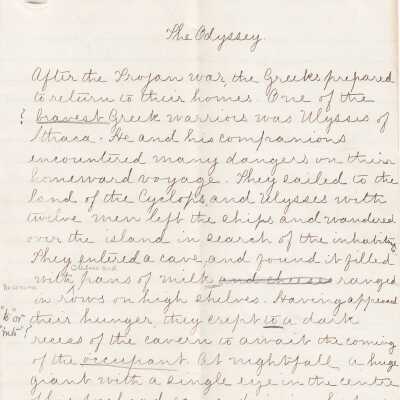 The Odyssey.
After the Trojan war, the Greeks prepared
to return to their homes. One of the
? bravest Greek warriors was Ulysses of
Ithaca. He and his companions
encountered many dangers on their
homeward voyage. They sailed to the
land of the Cyclops and Ulysses with
twelve men left the ships and wandered
over the island in search of the
They entered a cave and found it filled
with pans of milk and cheeses ranged
in rows on high shelves. Having appeased
their hunger, they crept to a dark
"to" or "into"?
recess of the cavern to await the coming
of the occupant. At nightfall, a huge
giant with a single eye in the centre